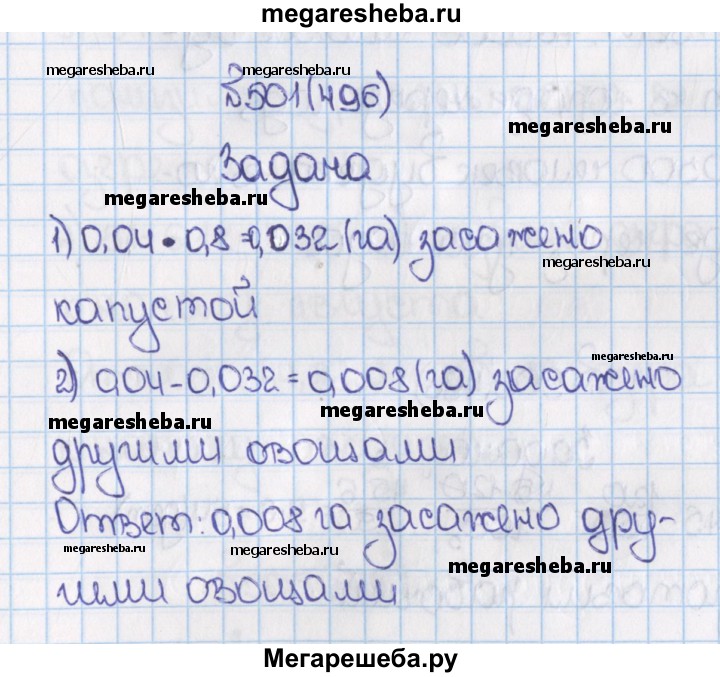 megaresheba.ru
megaresheba.ru megaresheba.ru
№501(496)
megaresheba.ru
Задача
megaresheba.ru
1) 0,04 • 0,8 = 0,032 (га) засажено
megaresheba.ru
капустой
megaresheba.ru
2) 0,04 - 0,032 = 0,008 (га) засажено
megaresheba.ru megaresheba.ru
другими овощами
Ответ: 0,008 га засажено дру-
megaresheba.ru megaresheba.ru megaresheba.ru
гими овощами
Мегарешеба.ру